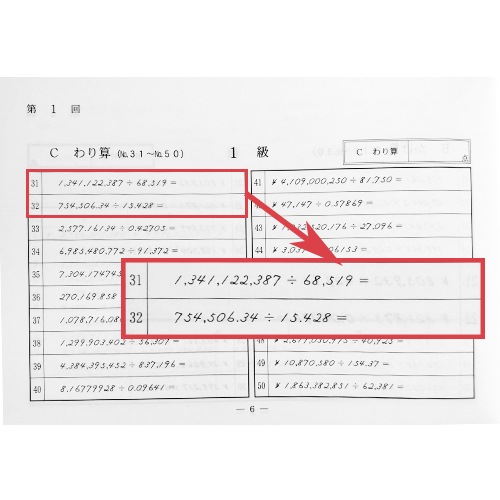 第 1 回
C わり算 (№31〜№50) 1 級
C わり算
点
31 1,341,122,387 ÷ 68,519 =
32 754,506.34 ÷ 15.428 =
33 2,577.16134 ÷ 0.42705 =
34 6,985,480,772 ÷ 91,372 =
35 7,304.174745
36 270,169.858
37 1,078,716,086
38 1,299,903,402 ÷ 56,301 =
39 4,384,395,452 ÷ 837,196 =
40 8.16779928 ÷ 0.09641 =
41 ¥ 4,109,000,250 ÷ 81,750 =
42 ¥ 47,147 ÷ 0.57869 =
43 ÷ 27,096 =
44 06153 =
48 ¥ 2,617,030,975 ÷ 40,925 =
49 ¥ 10,870,580 ÷ 154.37 =
50 ¥ 1,863,382,851 ÷ 62,381 =
31 1,341,122,387 ÷ 68,519 =
32 754,506.34 ÷ 15.428 =
— 6 —